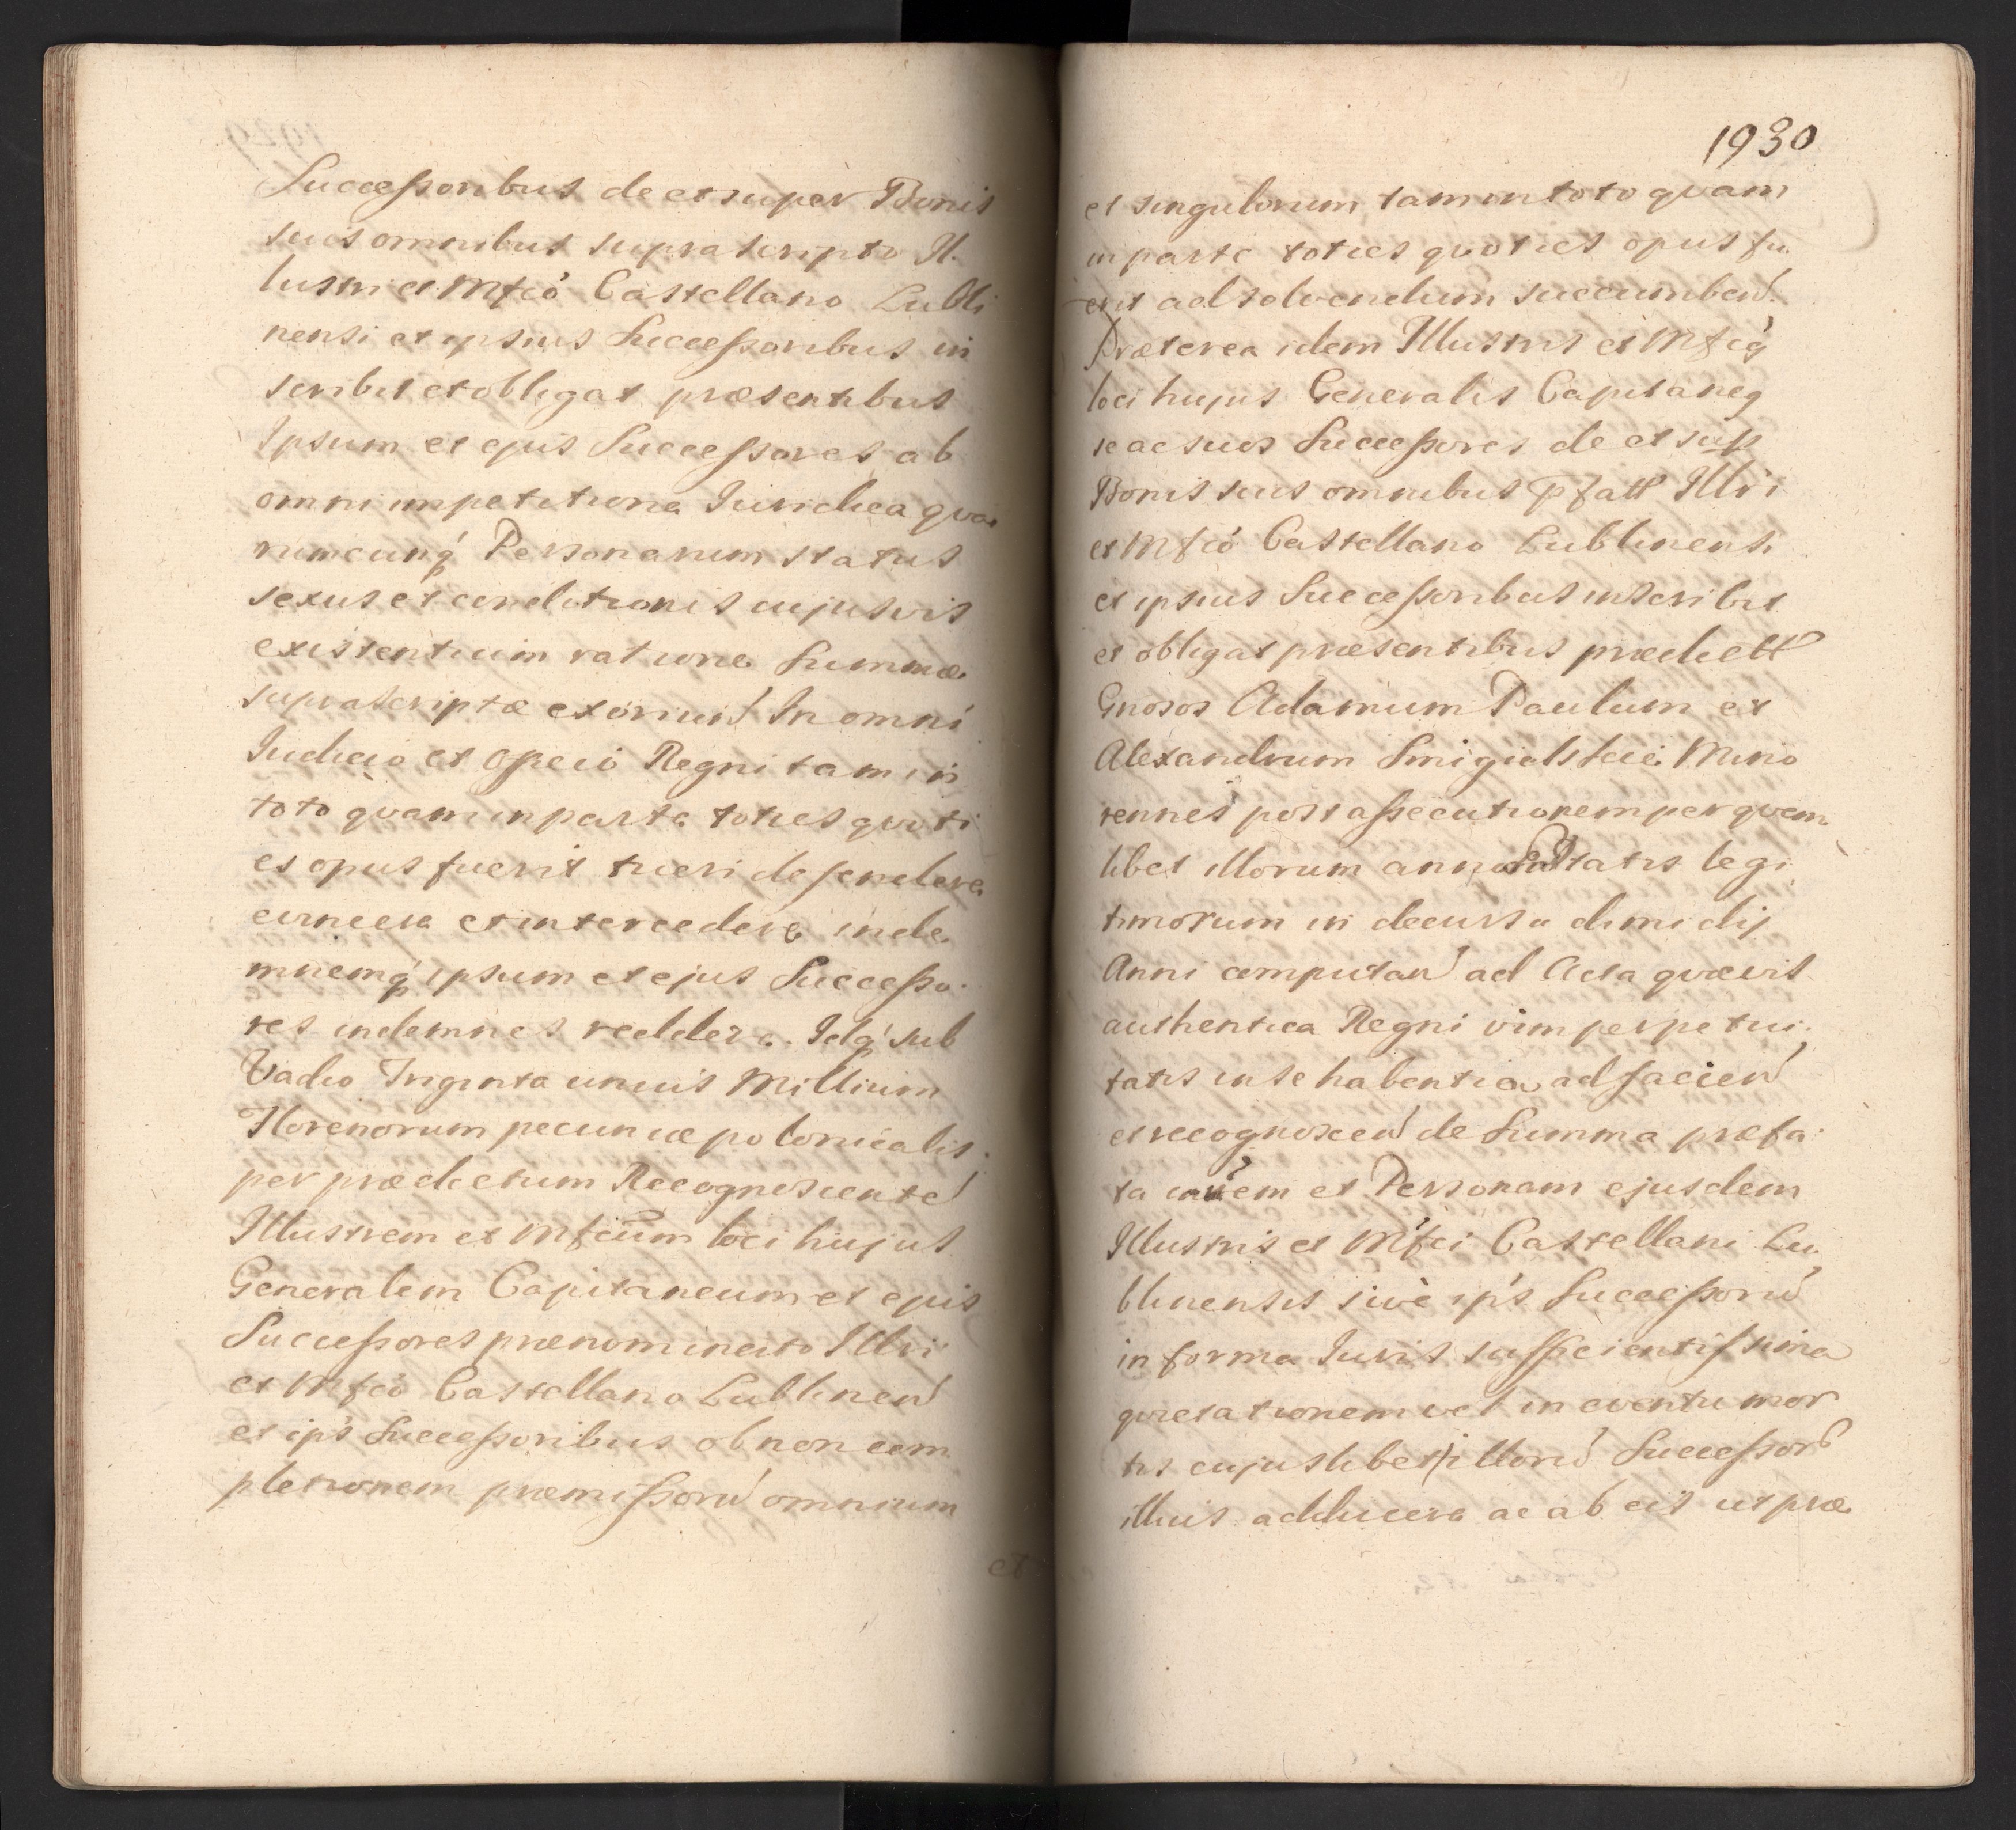 Successoribus de et super Bonis
suis omnibus suprascripto Il.
lustri et Mfcó Castellano Lubli
nensi et ipsius Successoribus in
scribit et obligat præsentibus
Ipsum et ejus Successores ab
omni impetitione Juridica quo
rumcunq́ Personarum status
sexus et conditionis cujusvis
existentium ratione Summæ
suprascriptæ exoriun In omni
Judicio et Officio Regni tam in
toto quam in parte toties quoti
es opus fuerit tueri defendere
evincere et intercedere inde
mnemq́ ipsum et ejus Successo
res indemnes reddere. Idq́ sub
Vadio Triginta unius Millium
Florenorum pecuniæ polonicalis
per prædictum Recognoscente
Illustrem et Mfcum loci hujus
Generalem Capitaneum et ejus
Successores prænominato Illri
et Mfcó Castellano Lublinen
et ips Successoribus ob non com
pletionem præmissoru omnium
et
1930
et singulorum tam in toto quam
in parte toties quoties opus fu
erit ad solvendum succumben.
Præterea idem Illustris et Mfcq
loci hujus Generalis Capitaneq
se ac suos Successores de et sup
Bonis suis omnibus pfatt Illri
et Mfcó Castellano Lublinensi
et ipsius Successoribus inscribit
et obligat præsentibus prædictt
Gnosos Adamum Paulum et
Alexandrum Smigielskie Mino
rennes post assecutionem per quem
libet illorum annoru Ætatis legi
timorum in decursu dimidij
Anni computan ad Acta quævis
authentica Regni vim perpetui
tatis in se habentia ad facien
et recognoscen de Summa præfa
ta in rem et Personam ejusdem
Illustris et Mfci Castellani Lu
blinensis sivè ips Successoru
in forma Juris sufficientissima
quietationem vel in eventu mor
tis cujuslibet illoru Successor
illius adducere ac ab eis ut præ